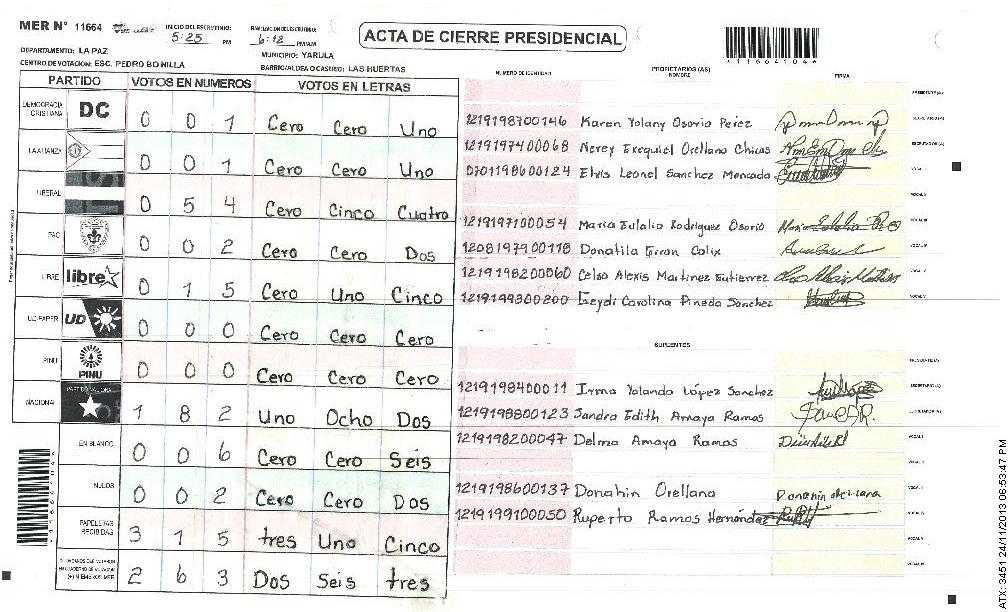 MER N° 11664 INICIO DEL ESCRUTINIO: 5:25 PM 6:12 PM/AM
ACTA DE CIERRE PRESIDENCIAL
*11664104*
DEPARTAMENTO: LA PAZ MUNICIPIO: YARULA
CENTRO DE VOTACION: ESC. PEDRO BONILLA BARRIO/ALDEA O CASERIO: LAS HUERTAS
PARTIDO VOTOS EN NUMEROS VOTOS EN LETRAS
DEMOCRACIA CRISTIANA DC 0 0 1 Cero Cero Uno
LA ALIANZA 0 0 1 Cero Cero Uno
LIBERAL 0 5 4 Cero Cinco Cuatro
PAC 0 0 2 Cero Cero Dos
LIBRE libre 0 1 5 Cero Uno Cinco
UD-FAPER UD 0 0 0 Cero Cero Cero
PINU PINU 0 0 0 Cero Cero Cero
NACIONAL PARTIDO NACIONAL 1 8 2 Uno Ocho Dos
EN BLANCO 0 0 6 Cero Cero Seis
NULOS 0 0 2 Cero Cero Dos
PAPELETAS RECIBIDAS 3 1 5 tres Uno Cinco
2 6 3 Dos Seis tres
NUMERO DE IDENTIDAD PROPIETARIOS (AS) NOMBRE FIRMA
PRESIDENTE(A)
1219198700146 Karen Yolany Osorio Perez SECRETARIO(A)
1219197400068 Nerey Exequiel Orellano Chicas ESCRUTADOR(A)
0701198600124 Elvis Leonel Sanchez Moncada VOCAL I
VOCAL II
1219197100054 Maria Eulalia Rodriguez Osorio VOCAL III
1208197900118 Donatila Giron Calix VOCAL IV
1219198200060 Celso Alexis Martinez Gutierrez VOCAL V
1219199300200 Leydi Carolina Pineda Sanchez
SUPLENTES
PRESIDENTE(A)
1219198400011 Irma Yolanda López Sanchez SECRETARIO(A)
1219198800123 Sandra Edith Amaya Ramos ESCRUTADOR(A)
1219198200047 Delma Amaya Ramos VOCAL I
VOCAL II
1219198600137 Donahin Orellana VOCAL III
1219199100050 Ruperto Ramos Hernández VOCAL IV
ATX: 3451 24/11/2013 06:53:47 PM